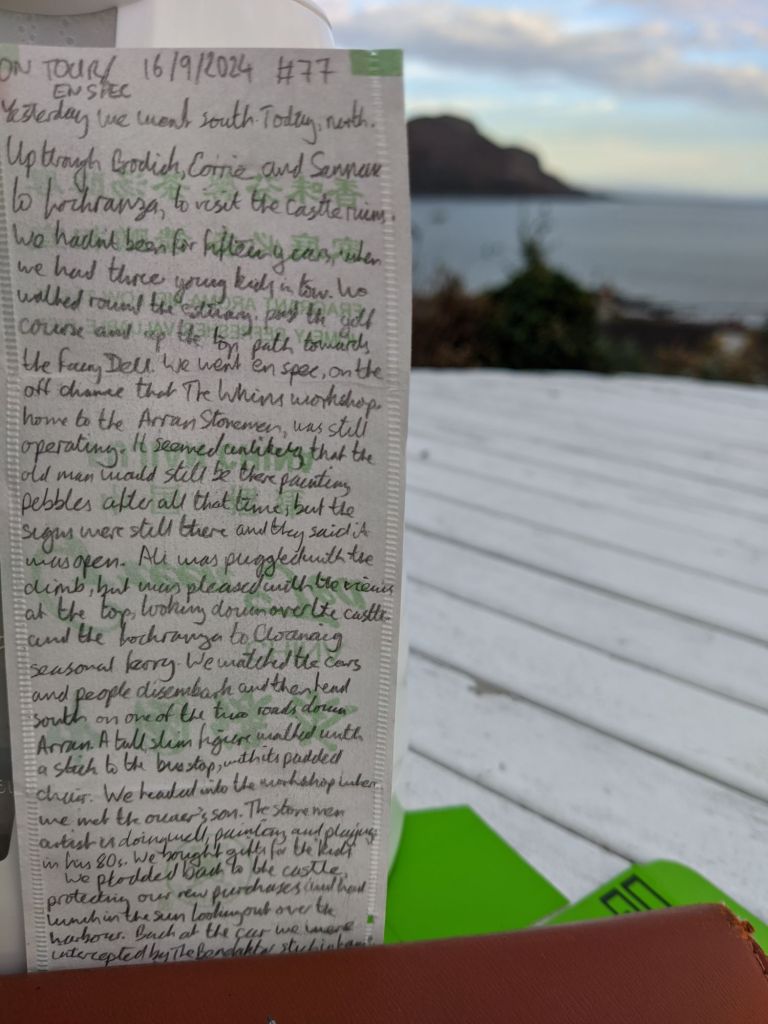 ON TOUR/ 16/9/2024 #77
EN SPEC
Yesterday we went south. Today, north.
Up through Brodick, Corrie, and Sannox
to Lochranza, to visit the castle ruins.
We hadn't been for fifteen years, when
we had three young kids in tow. We
walked round the estuary, past the golf
course and up the top path towards
the Fairy Dell. We went en spec, on the
off chance that The Whins workshop,
home to the Arran Stonemen, was still
operating. It seemed unlikely that the
old man would still be there painting
pebbles after all that time, but the
signs were still there and they said it
was open. Ali was puggled with the
climb, but was pleased with the views
at the top, looking down over the castle
and the Lochranza to Cloanaig
seasonal ferry. We watched the cars
and people disembark and then head
south on one of the two roads down
Arran. A tall, slim figure walked with
a stick to the bus stop, with its padded
chair. We headed into the workshop when
we met the owner's son. The stonemen
artist is doing well, painting and playing
in his 80s. We bought gifts for the kids
We plodded back to the castle,
protecting our new purchases and had
lunch in the sun looking out over the
harbour. Back at the car we were
intercepted by The